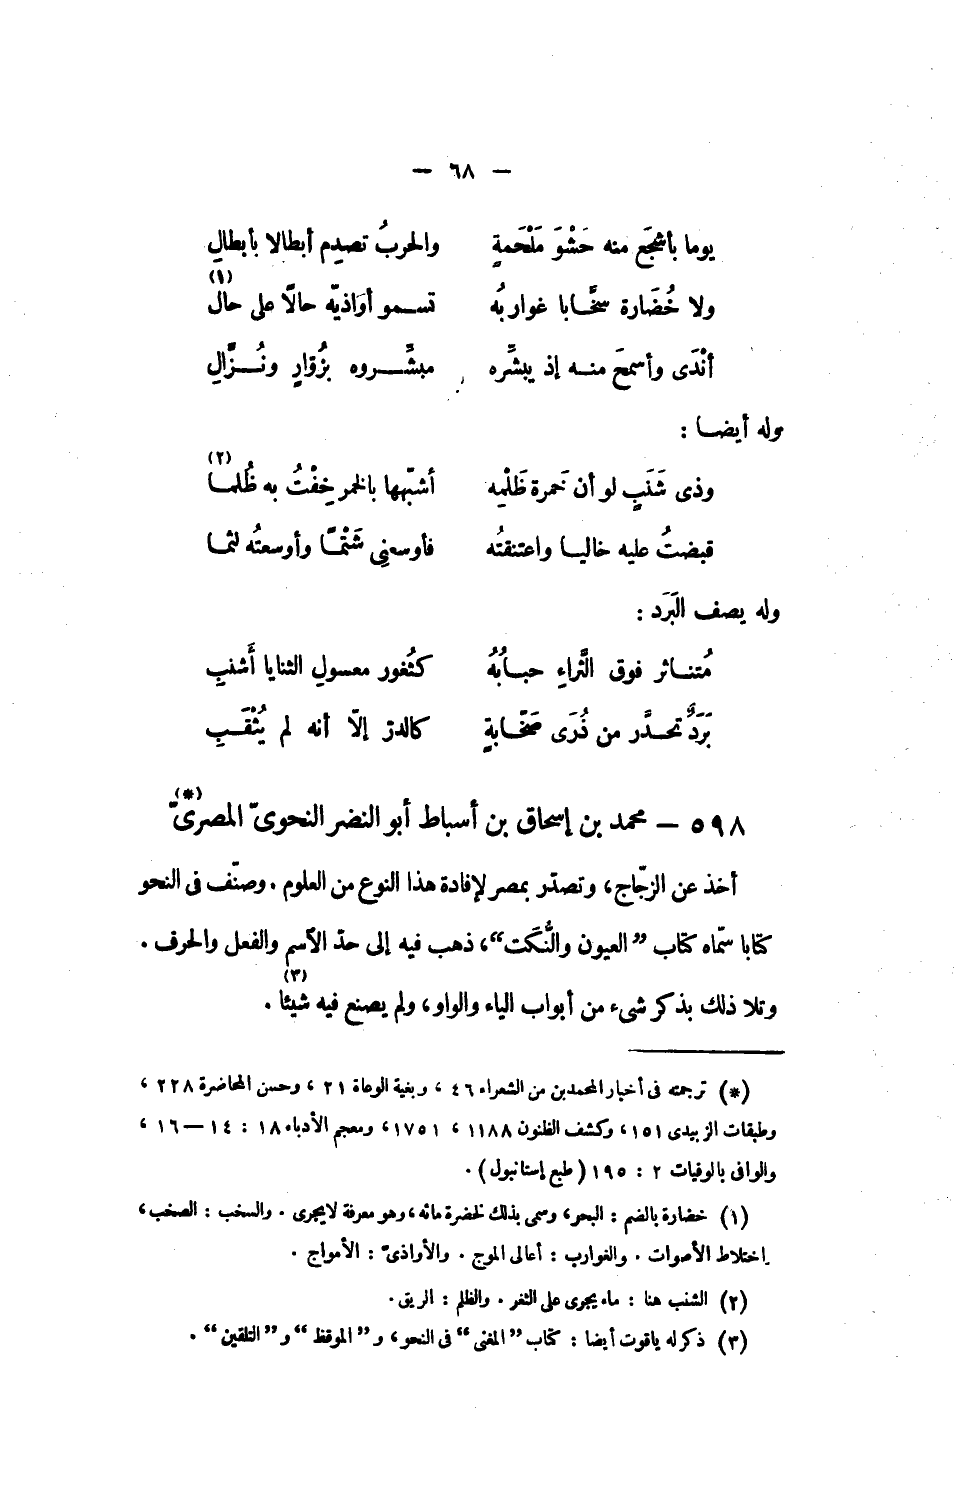 — ٦٨ —
يوما بأشجَع منه حَشْوَ مَلْحَمةٍ والحربُ تصدِم أبطالا بأبطالِ
ولا خُضَارة سخَّابا غواربُه تسمو أوَاذيّه حالّا على حال (١)
أنْدَى وأسمحَ منه إذ يبشَّره مبشَّروه بزُوّارٍ ونُزَّالِ
وله أيضا :
وذى شَنَبٍ لو أن خَمرة ظَلْمِه أشبّهها بالخمر خِفْتُ به ظُلما (٢)
قبضتُ عليه خاليا واعتنقتُه فأوسعنِى شَتْمّا وأوسعتُه لثما
وله يصف البَرَد :
مُتناثر فوق الثَّراءِ حبابُهُ كثُغور معسولِ الثنايا أَشنبِ
بَرَدٌ تحدَّر من ذُرَى صَخّابةٍ كالدرّ إلّا أنه لم يُثْقَبِ
٥٩٨ — محمد بن إسحاق بن أسباط أبو النضر النحوىّ المصرىّ (*)
أخذ عن الزجّاج، وتصدّر بمصر لإفادة هذا النوع من العلوم . وصنّف فى النحو
كتابا سمّاه كتاب ” العيون والنُّكَت“، ذهب فيه إلى حدّ الآسم والفعل والحرف .
وتلا ذلك بذكر شىء من أبواب الياء والواو، ولم يصنع فيه شيئا (٣) .
(*) ترجمته فى أخبار المحمدين من الشعراء ٤٦ ، وبغية الوعاة ٢١ ، وحسن المحاضرة ٢٢٨ ،
وطبقات الزبيدى ١٥١، وكشف الظنون ١١٨٨ ، ١٧٥١، ومعجم الأدباء ١٨ : ١٤ — ١٦ ،
والوافى بالوفيات ٢ : ١٩٥ ( طبع إستانبول ) .
(١) خضارة بالضم : البحر، وسمى بذلك لخضرة مائه، وهو معرفة لا يجرى . والسخب : الصخب،
اختلاط الأصوات . والغوارب : أعالى الموج . والأواذىّ : الأمواج .
(٢) الشنب هنا : ماء يجرى على الثغر . والظلم : الريق .
(٣) ذكر له ياقوت أيضا : كتاب ” المغنى “ فى النحو، و ” الموقظ “ و ” التلقين “ .